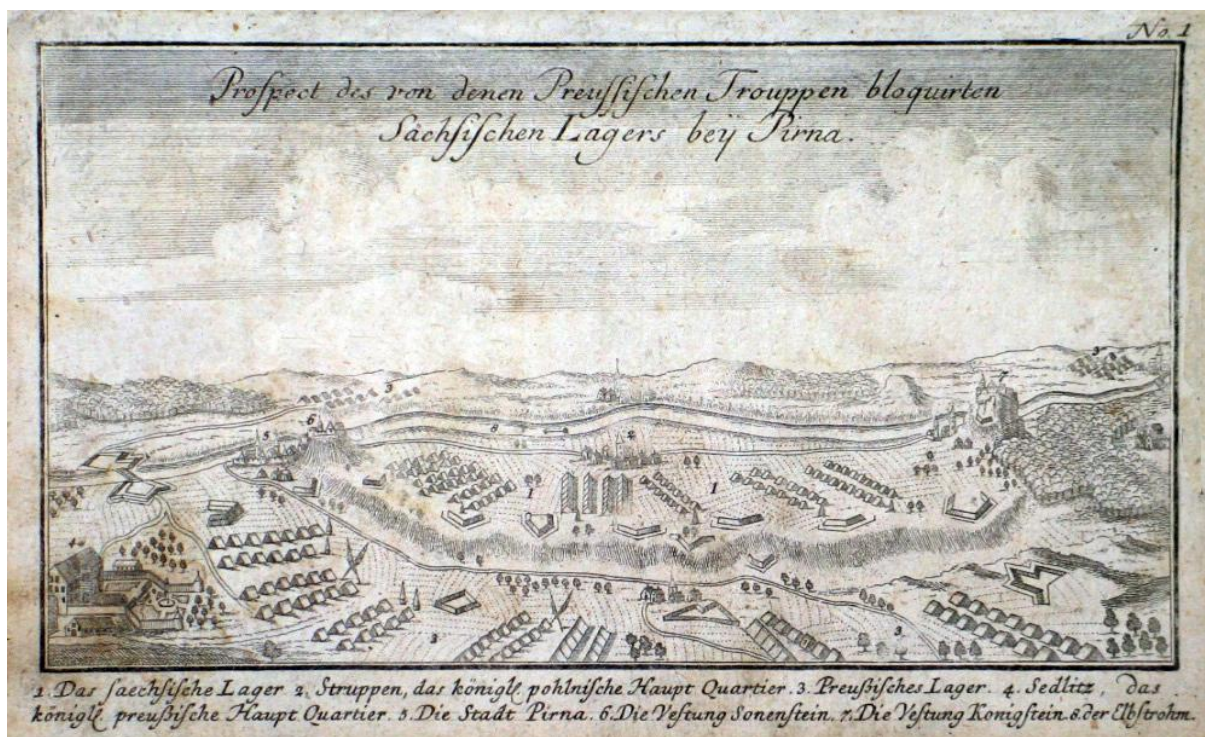 No. 1
Prospect des von denen Preussischen Trouppen bloquirten
Sächsischen Lagers beÿ Pirna.
3
3
7
6
8
2
5
1
1
4
3
3
1. Das saechsische Lager 2. Struppen, das königl. pohlnische Haupt Quartier. 3. Preußisches Lager. 4. Sedlitz, das
königl. preußische Haupt Quartier. 5. Die Stadt Pirna. 6. Die Vestung Sonenstein. 7. Die Vestung Konigstein. 8. der Elbstrohm.